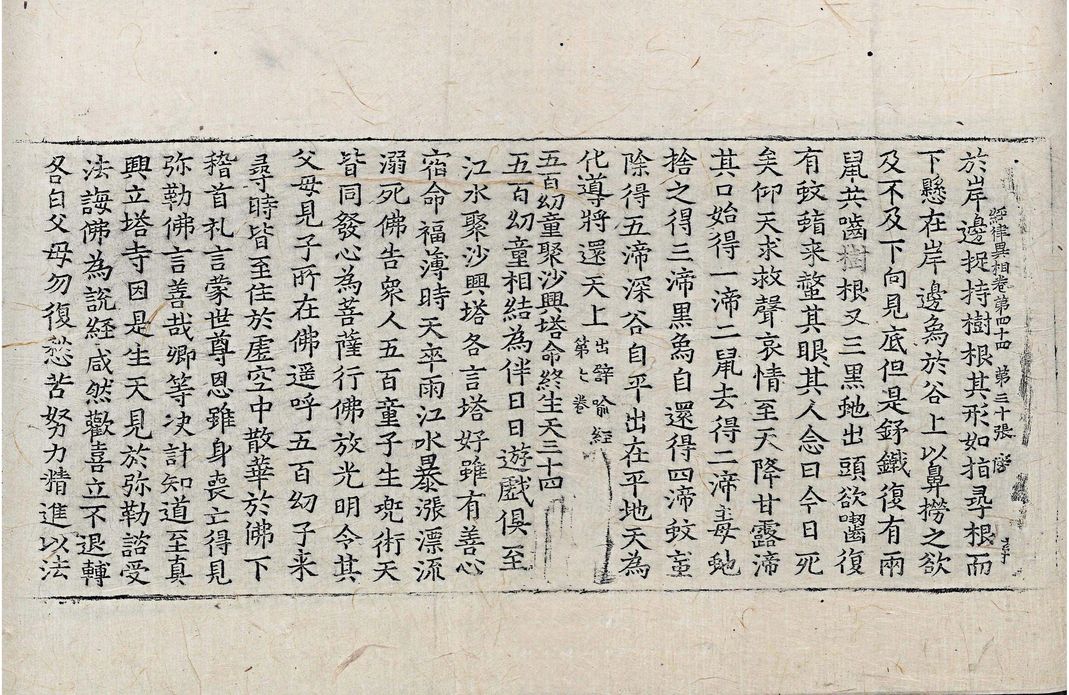 經律異相卷第四十四 第三十張
於岸邊捉持樹根其形如指尋根而
下懸在岸邊烏於谷上以鼻撈之欲
及不及下向見底但是鋒鐵復有兩
鼠共嚙樹根又三黑虵出頭欲囓復
有蚊蝱来螫其眼其人念曰今日死
矣仰天求救聲哀情至天降甘露渧
其口始得一渧二鼠去得二渧毒虵
捨之得三渧黑烏自還得四渧蚊䖟
除得五渧深谷自平出在平地天為
化導將還天上出譬喻經
第七卷
五百㓜童聚沙興塔命終生天三十四
五百㓜童相結為伴日日遊戲俱至
江水聚沙興塔各言塔好雖有善心
宿命福薄時天卒雨江水暴漲漂流
溺死佛告衆人五百童子生兜術天
皆同發心為菩薩行佛放光明令其
父母見子所在佛遥呼五百㓜子来
尋時皆至住於虛空中散華於佛下
稽首礼言蒙世尊恩雖身喪亡得見
弥勒佛言善哉卿等决計知道至真
興立塔寺因是生天見於弥勒諮受
法誨佛為說經咸然歡喜立不退轉
各白父母勿復愁苦努力精進以法